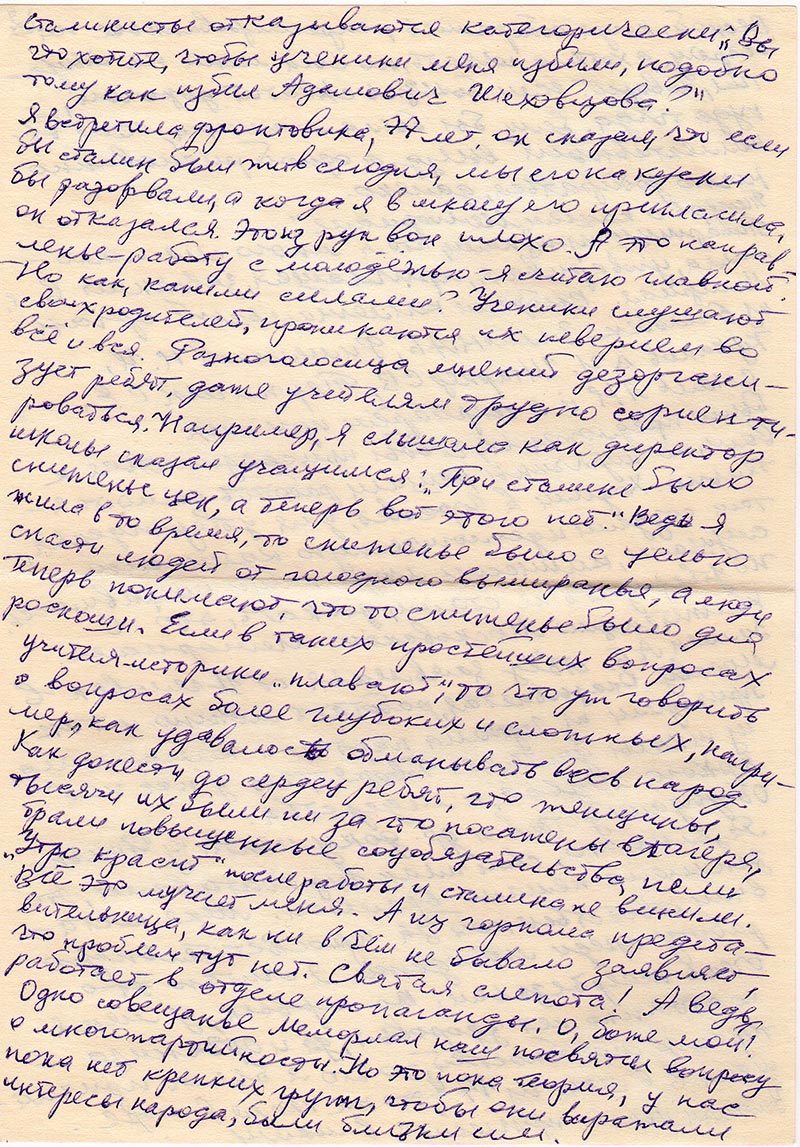 сталинисты отказываются категорически: „Вы
что хотите, чтобы ученики меня избили, подобно
тому как избил Адамович Шеховцова?"
Я встретила фронтовика, 77 лет, он сказал, что если
бы сталин был жив сегодня, мы его на куски
бы разорвали, а когда я в школу его пригласила,
он отказался. Это из рук вон плохо. А это направ-
ленье-работу с молодёжью-я считаю главной.
Но как, какими силами? Ученики слушают
своих родителей, проникаются их неверием во
всё и вся. Разноголосица мнений дезоргани-
зует ребят, даже учителям трудно сориенти-
роваться. Например, я слышала как директор
школы сказал учащимся: „При сталине было
сниженье цен, а теперь вот этого нет." Ведь я
жила в то время, то сниженье было с целью
спасти людей от голодного вымиранья, а люди
теперь понимают, что то сниженье было для
роскоши. Если в таких простейших вопросах
учителя-историки „плавают", то что уж говорить
о вопросах более глубоких и сложных, напри-
мер, как удавалось обманывать весь народ
Как донести до сердец ребят, что женщины,
тысячи их были ни за что посажены в лагеря,
брали повышенные соцобязательства, пели
„Утро красит" после работы и сталина не винили.
Всё это мучает меня. А из горкома предста-
вительница, как ни в чём не бывало заявляет,
что проблем тут нет. Святая слепота! А ведь
работает в отделе пропаганды. О, боже мой!
Одно совещанье Мемориал наш посвятил вопросу
о многопартийности. Но это пока теория, у нас
пока нет крепких групп, чтобы они выражали
интересы народа, были близки им.